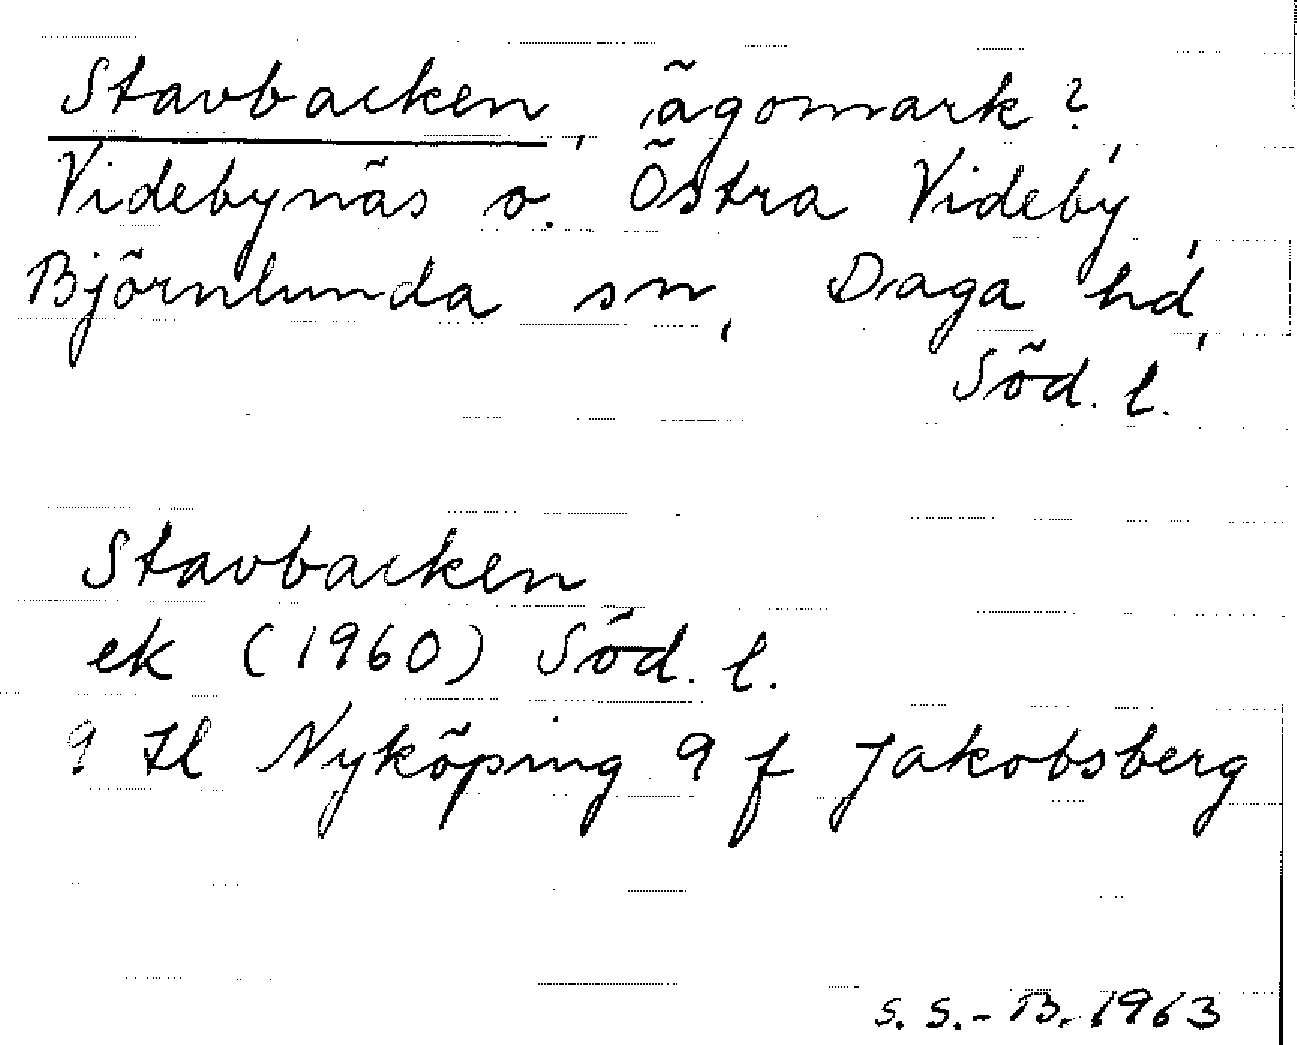 Stavbacken, ägomark?,
Videbynäs o. Östra Videby,
Björnlunda sn, Daga hd,
Söd. l.
Stavbacken
ek (1960) Söd. l.
9 Hl Nyköping 9 f Jakobsberg
S. S.-B. 1963